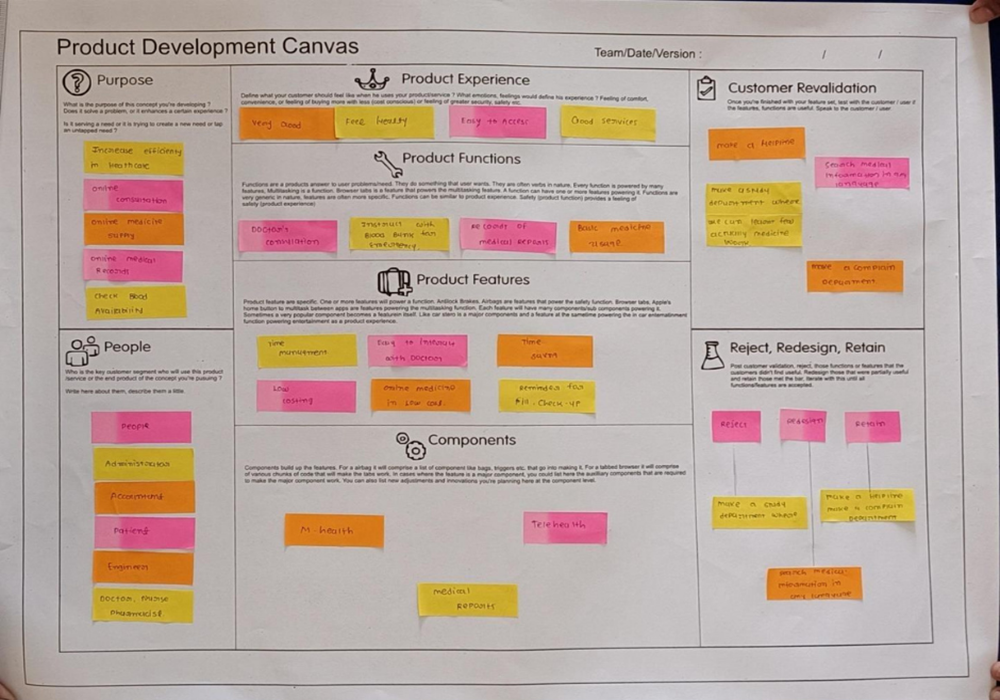 Product Development Canvas
Team/Date/Version : / /
Purpose
What is the purpose of this concept you're developing ?
Does it solve a problem, or it enhances a certain experience ?
Is it serving a need or it is trying to create a new need or tap
an untapped need ?
Increase efficiency
in healthcare
online
consultation
online medicine
online medical
Records
check Blood
Availability
People
Who is the key customer segment who will use this product
/service or the end product of the concept you're pusuing ?
Write here about them, describe them a little.
People
Administrator
Accountant
Patient
Engineer
Doctor, Nurse
Pharmacist
Product Experience
Define what your customer should feel like when he uses your product/service ? What emotions, feelings would define his experience ? Feeling of comfort,
convenience, or feeling of buying more with less (cost conscious) or feeling of greater security, safety etc.
Very Good
Feel Healthy
Easy to Access
Good services
Product Functions
Functions are a products answer to user problems/need. They do something that user wants. They are often verbs in nature. Every function is powered by many
features. Multitasking is a function. Browser tabs is a feature that powers the multitasking feature. A function can have one or more features powering it. Functions are
very generic in nature, features are often more specific. Functions can be similar to product experience. Safety (product function) provides a feeling of
safety (product experience)
Doctor's
consultation
with
Blood Bank for
Emergency
Records of
medical Reports
Basic medicine
usage
Product Features
Product feature are specific. One or more features will power a function. Antilock Brakes, Airbags are features that power the safety function. Browser tabs, Apple's
home button to multitask between apps are features powering the multitasking function. Each feature will have many components/sub components powering it.
Sometimes a very popular component becomes a featuren itself. Like car stero is a major components and a feature at the sametime powering the in car entertainment
function powering entertainment as a product experience.
Time
Easy to
with Doctor
Time
saves
Low
costing
online medicine
in Low cost.
Reminder for
Check-up
Components
Components build up the features. For a airbag it will comprise a list of component like bags, triggers etc, that go into making it. For a tabbed browser it will comprise
of various chunks of code that will make the tabs work. In cases where the feature is a major component, you could list here the auxiliary components that are required
to make the major component work. You can also list new adjustments and innovations you're planning here at the component level.
M-health
Telehealth
medical
Reports
Customer Revalidation
Once you're finished with your feature set, test with the customer / user if
the features, functions are useful. Speak to the customer / user.
make a helpline
Search medical
information in any
language
more a study
department where
we can
actually medicine
work
make a complain
Department
Reject, Redesign, Retain
Post customer validation, reject, those functions or features that the
customers didn't find useful. Redesign those that were partially useful
and retain those met the bar. Iterate with this until all
functions/features are accepted.
Reject
Redesign
Retain
make a study
department where
make a helpline
make a complain
Department
search medical
information in
any language